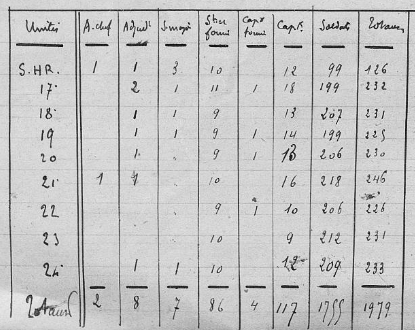 Unités A.chef Adjud! S.major Cap.! Soldats Totaux
S.HR. 1 1 3 10 12 99 126
17 2 1 11 1 18 199 232
18 1 1 9 13 207 231
19 1 1 9 1 14 199 225
20 1 9 1 13 206 230
21 1 1 10 16 218 246
22 9 1 10 206 226
23 10 9 212 231
24 1 1 10 12 209 233
Totaux 2 8 7 86 4 117 1755 1979